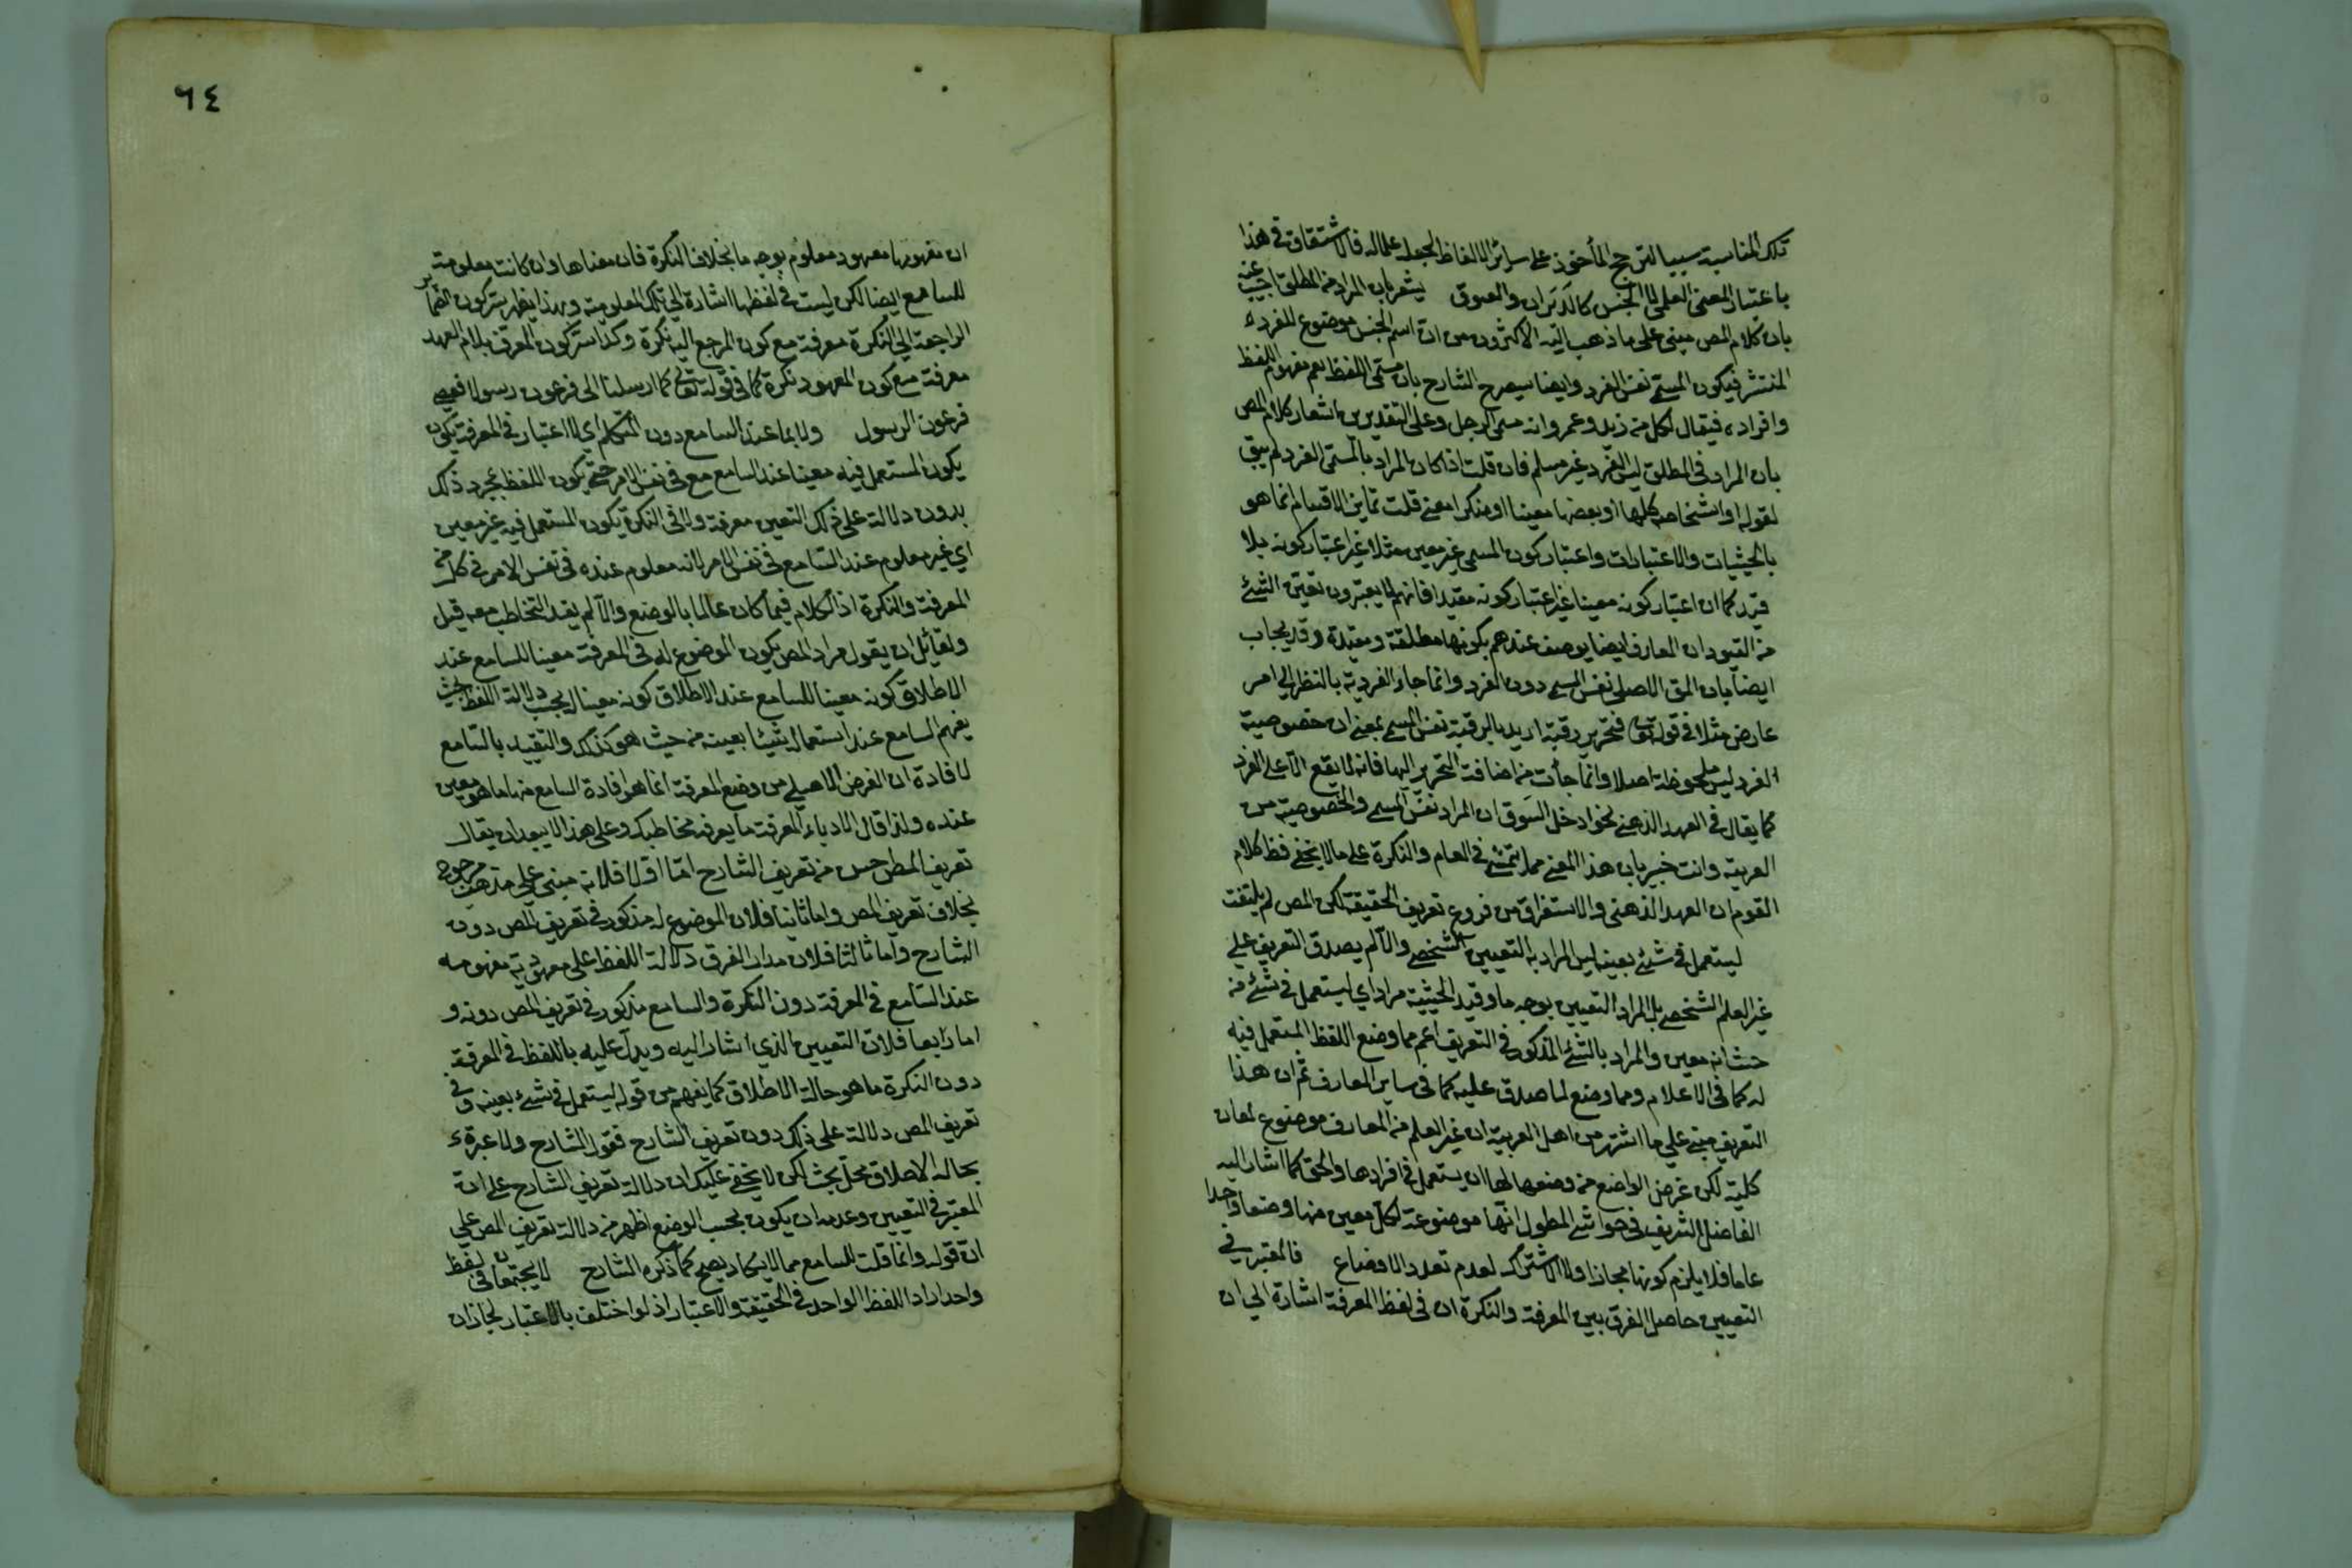 تلك المناسبة سببا لترجيح المأخوذ على سائر الالفاظ لجعله علما له فالاشتقاق في هذا
باعتبار المعنى العلمي لا الجنس كالدبران والعيوق يشعر بان المراد من المطلق اجيب عنه
بان كلام المص مبنى على ما ذهب اليه الاكثرون من ان اسم الجنس موضوع للفرد
المنتشر فيكون المسمى نفس الفرد وايضا سيصرح الشارح بان مسمى اللفظ يعم مفهوم اللفظ
وافراده فيقال لكل من زيد وعمرو انه مسمى الرجل وعلى التقديرين اشعار كلام المص
بان المراد في المطلق ليس الفرد غير مسلم فان قلت اذا كان المراد بالمسمى الفرد لم يبق
لقوله او اشخاصه كلها او بعضها معينا او منكرا معنى قلت تماين الاقسام انما هو
بالحيثيات والاعتبارات واعتبار كون المسمى غير معين مثلا غير اعتبار كونه بلا
قيد كما ان اعتبار كونه معينا غير اعتبار كونه مقيدا فانهم لا يعتبرون تعين الشئ
من القيود ان المعارف ايضا يوصف عندهم بكونها مطلقة ومقيدة وقد يجاب
ايضا بان المق الاصلى نفس المسمى دون الفرد وانما جاء الفردية بالنظر الى امر
عارض مثلا في قوله تع فتحرير رقبة اريد بالرقبة نفس المسمى بمعنى ان خصوصية
الفرد ليس ملحوظة اصلا وانما جأت من اضافت التحرير اليها فانه لا يقع الا على الفرد
كما يقال في العهد الذهني نحو ادخل السوق ان المراد نفس المسمى والخصوصية من
العربية وانت خبير بان هذا المعنى مما يتمشى في العام والنكرة على ما لا يخفى فظ كلام
القوم ان العهد الذهنى والاستغراق من فروع تعريف الحقيقة لكن المص لم يلتفت
ليستعمل في شئ بعينه ليس المراد به التعيين الشخصي والا لم يصدق التعريف على
غير العلم الشخصي بل المراد التعيين بوجه ما وقيد الحيثية مراد اي ليستعمل في شئ من
حيث انه معين والمراد بالشئ المذكور في التعريف اعم مما وضع اللفظ المستعمل فيه
له كما في الاعلام ومما وضع لما صدق عليه كما في ساير المعارف ثم ان هذا
التعريف مبنى على ما اشتهر من اهل العربية ان غير العلم من المعارف موضوع لمعان
كلية لكن غرض الواضع من وضعها لها ان يستعمل في افرادها والحق كما اشار اليه
الفاضل الشريف في حواشي المطول انها موضوعة لكل معين منها وضعا واحدا
عاما فلا يلزم كونها مجازا ولا الاشتراك لعدم تعدد الاوضاع فالمعتبر في
التعيين حاصل الفرق بين المعرفة والنكرة ان في لفظ المعرفة اشارة الى ان
٦٤
ان مفهومها معهود معلوم بوجه ما بخلاف النكرة فان معناها وان كانت معلومة
للسامع ايضا لكن ليست في لفظها اشارة الى تلك المعلومية وبهذا يظهر سر كون الضمائر
الراجعة الى النكرة معرفة مع كون المرجع اليه نكرة وكذا سر كون المعرف بلام العهد
معرفة مع كون المعهود نكرة كما في قوله تعالى كما ارسلنا الى فرعون رسولا فعصى
فرعون الرسول ولا بما عند السامع دون المتكلم اي لا اعتبار في المعرفة بكون
يكون المستعمل فيه معينا عند السامع مع في نفس الامر حتى يكون اللفظ بمجرد ذلك
بدون دلالة على ذلك التعين معرفة ولا في النكرة بكون المستعمل فيه غير معين
اي غير معلوم عند السامع في نفس الامر لانه معلوم عنده في نفس الامر في كل من
المعرفة والنكرة اذ الكلام فيما كان عالما بالوضع والا لم يفد التخاطب معه قيل
ولقائل ان يقول مراد المص بكون الموضوع له في المعرفة معينا للسامع عند
الاطلاق كونه معينا للسامع عند الاطلاق كونه معينا بحسب دلالة اللفظ بحيث
يفهم السامع عند استعماله شيئا بعينه من حيث هو كذلك والتقييد بالسامع
لافادة ان الغرض الاصلي من وضع المعرفة انما هو افادة السامع منها ما هو معين
عنده ولذا قال الادباء المعرفة ما يعرفه مخاطبك وعلى هذا لا يبعد ان يقال
تعريف المص احسن من تعريف الشارح اما اولا فلانه مبنى على مذهب مرجوح
بخلاف تعريف المص واما ثانيا فلان الموضوع له مذكور في تعريف المص دون
الشارح واما ثالثا فلان مدار الفرق دلالة اللفظ على معهودية مفهومه
عند السامع في المعرفة دون النكرة والسامع مذكور في تعريف المص دونه و
اما رابعا فلان التعيين الذي اشار اليه ويدل عليه باللفظ في المعرفة
دون النكرة ما هو حالة الاطلاق كما يفهم من قوله ليستعمل في شئ بعينه وفي
تعريف المص دلالة على ذلك دون تعريف الشارح فقول الشارح ولا عبرة
بحالة الاطلاق محل بحث لكن لا يخفى عليك ان دلالة تعريف الشارح على ان
المعتبر في التعيين وعدمه ان يكون بحسب الوضع اظهر من دلالة تعريف المص على
ان قوله وانما قلت للسامع مما لا يكاد يصح كما ذكره الشارح لا يجتمعان في لفظ
واحد اراد اللفظ الواحد في الحقيقة والاعتبار اذ لو اختلف بالاعتبار لجاز ان